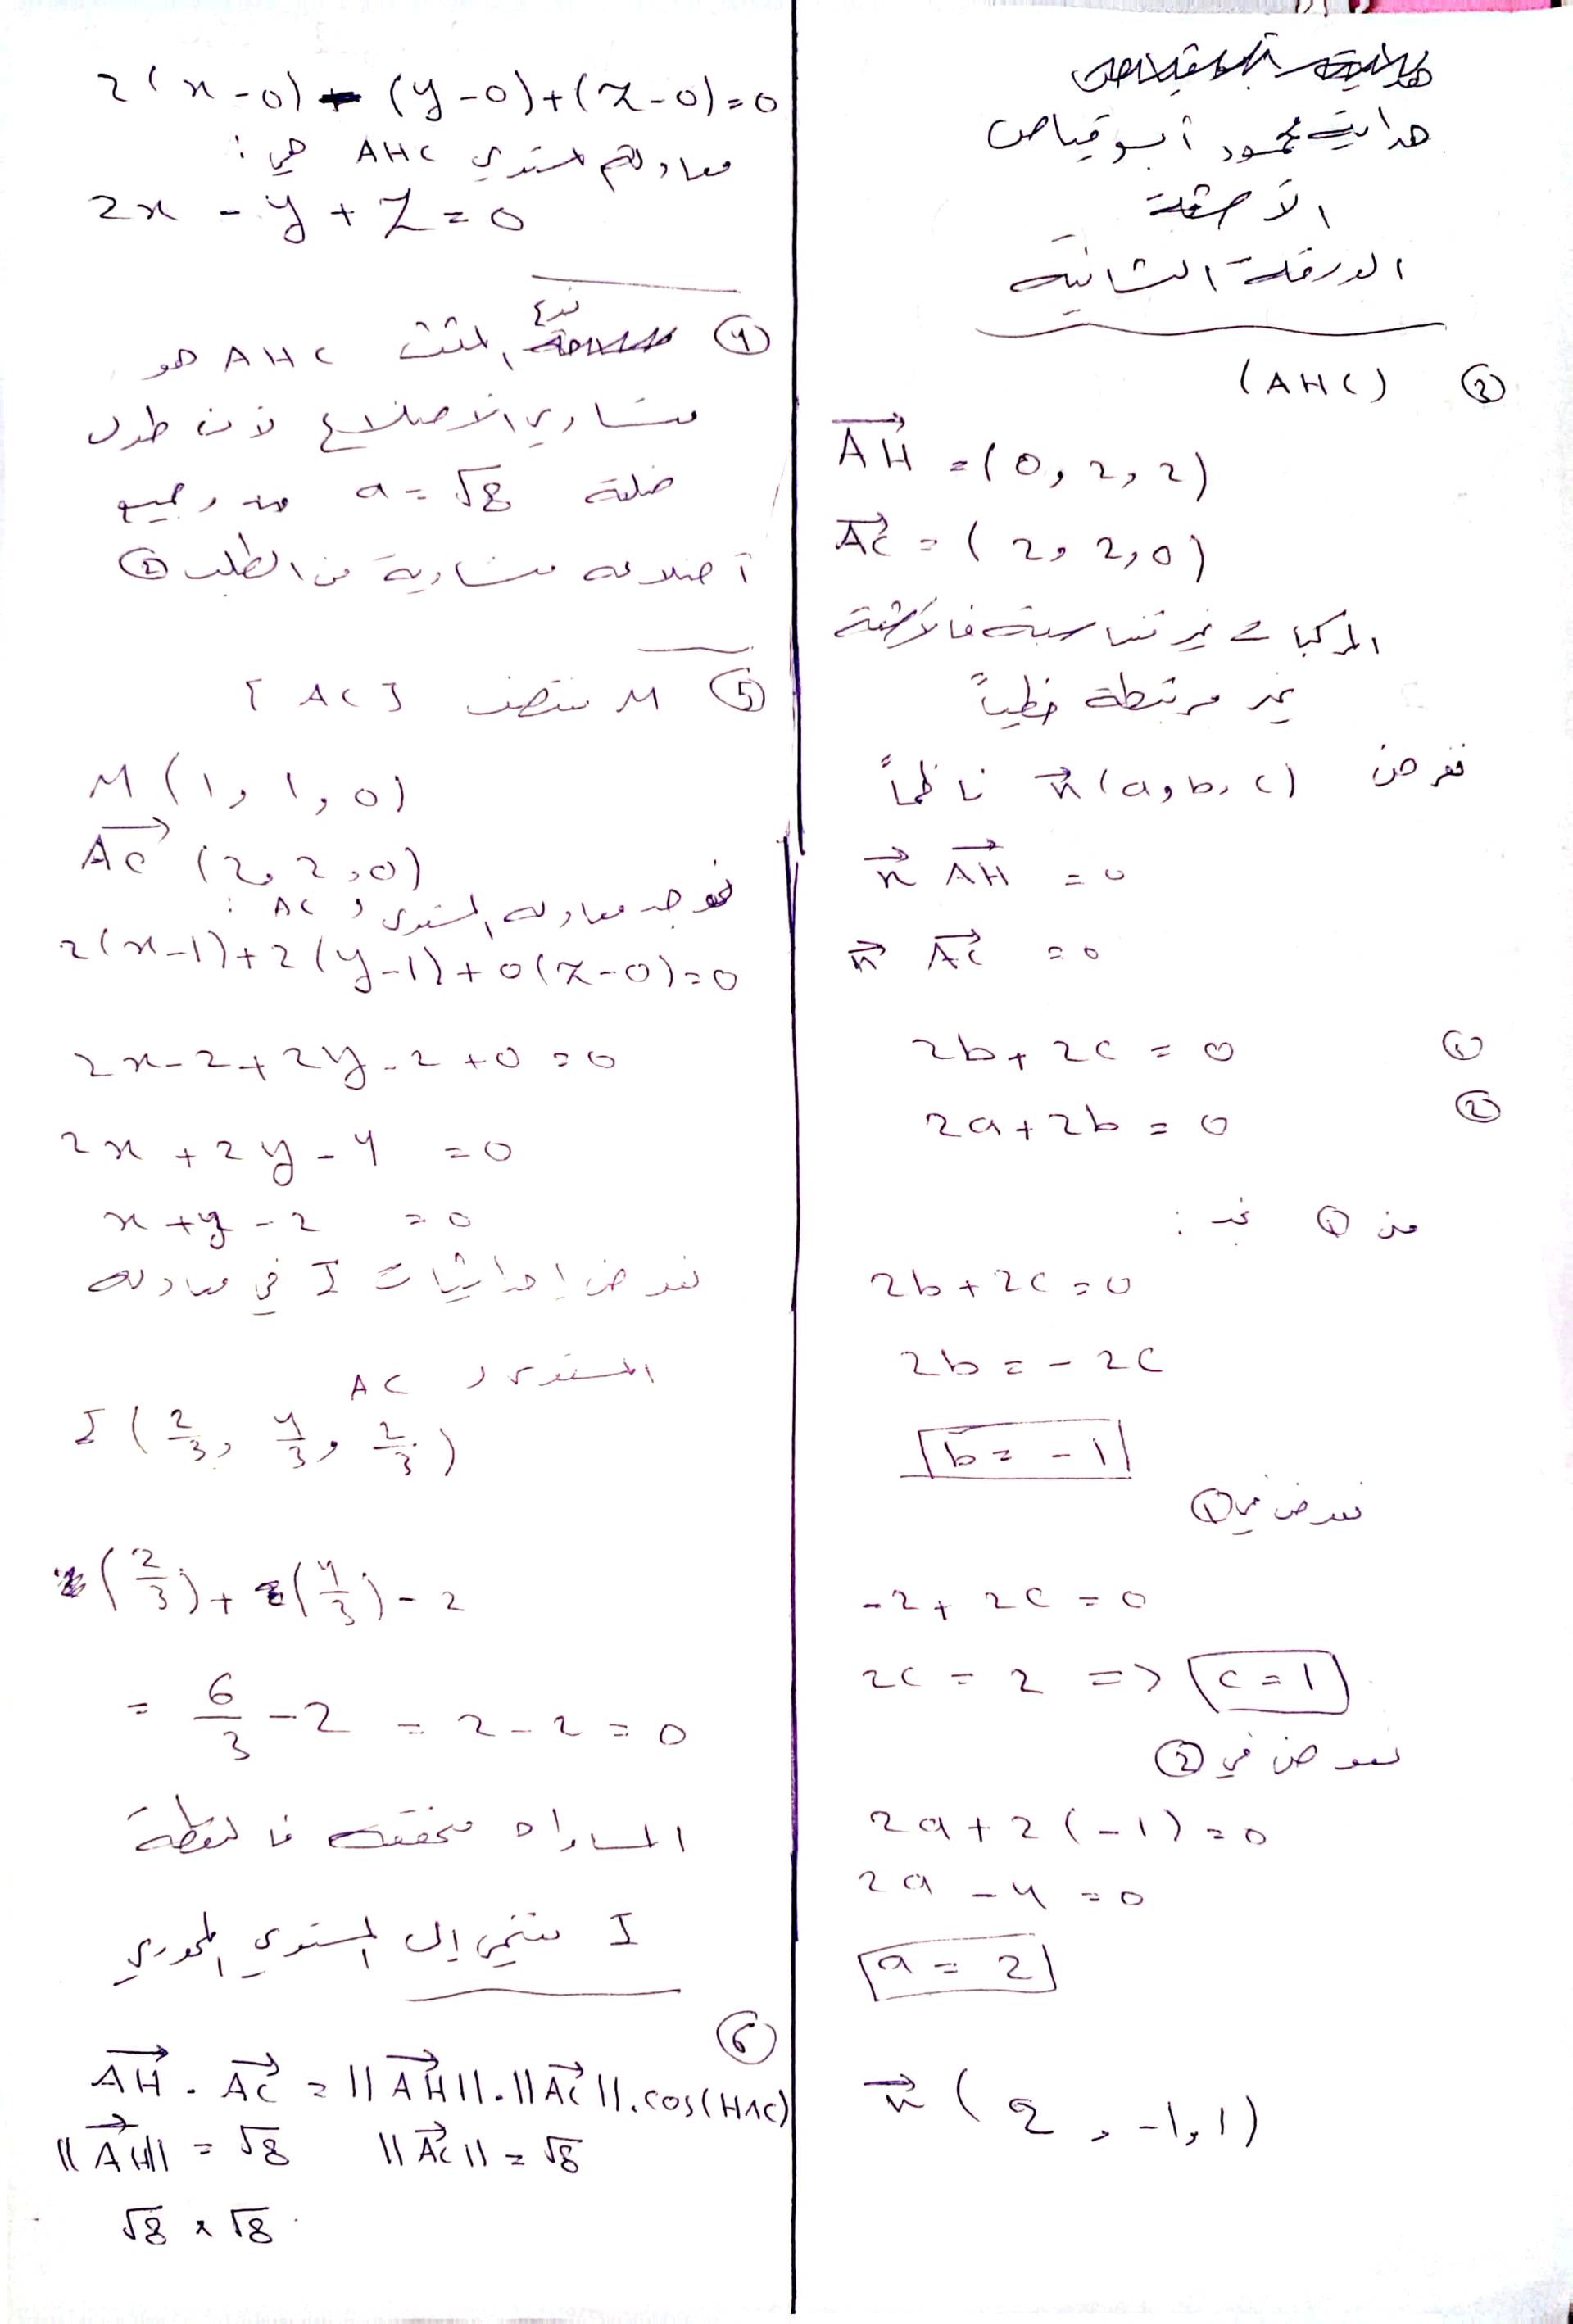 هداية محمود أبو قياص
الأشعة
الورقة الثانية
③ (AHC)
AH = (0, 2, 2)
AC = (2, 2, 0)
المركبات غير متناسبة فالأشعة
غير مرتبطة خطياً
نفرض n(a, b, c) ناظماً
n AH = 0
n AC = 0
2b + 2c = 0 ①
2a + 2b = 0 ②
من ① نجد :
2b + 2c = 0
2b = - 2c
b = - 1
نعوض في ①
-2 + 2c = 0
2c = 2 => c = 1
نعوض في ②
2a + 2(-1) = 0
2a - 4 = 0
a = 2
n (2, -1, 1)
2(x-0) - (y-0) + (z-0) = 0
معادلة المستوي AHC هي :
2x - y + z = 0
④ نوع المثلث AHC هو
متساوي الأضلاع لأن طول
ضلعه a = √8 وجميع
أضلاعه متساوية من الطلب ②
⑤ M منتصف [AC]
M (1, 1, 0)
AC (2, 2, 0)
نوجد معادلة المستوي لـ AC :
2(x-1) + 2(y-1) + 0(z-0) = 0
2x - 2 + 2y - 2 + 0 = 0
2x + 2y - 4 = 0
x + y - 2 = 0
نعوض إحداثيات I في معادلة
المستوي لـ AC
I (2/3, 4/3, 2/3)
(2/3) + (4/3) - 2
= 6/3 - 2 = 2 - 2 = 0
المساواة محققة فالنقطة
I تنتمي إلى المستوي المحوري
⑥
AH . AC = ||AH|| . ||AC|| . cos(HAC)
||AH|| = √8 ||AC|| = √8
√8 x √8